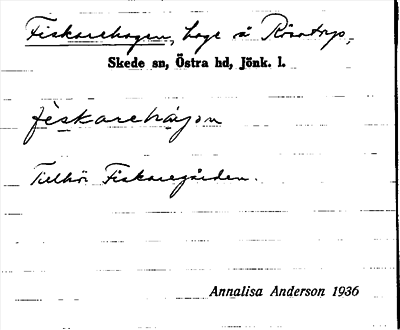 Fiskarehagen, hage å Rösatorp,
Skede sn, Östra hd, Jönk. l.
fèskarehàgɔn
Tillhör Fiskaregården.
Annalisa Anderson 1936